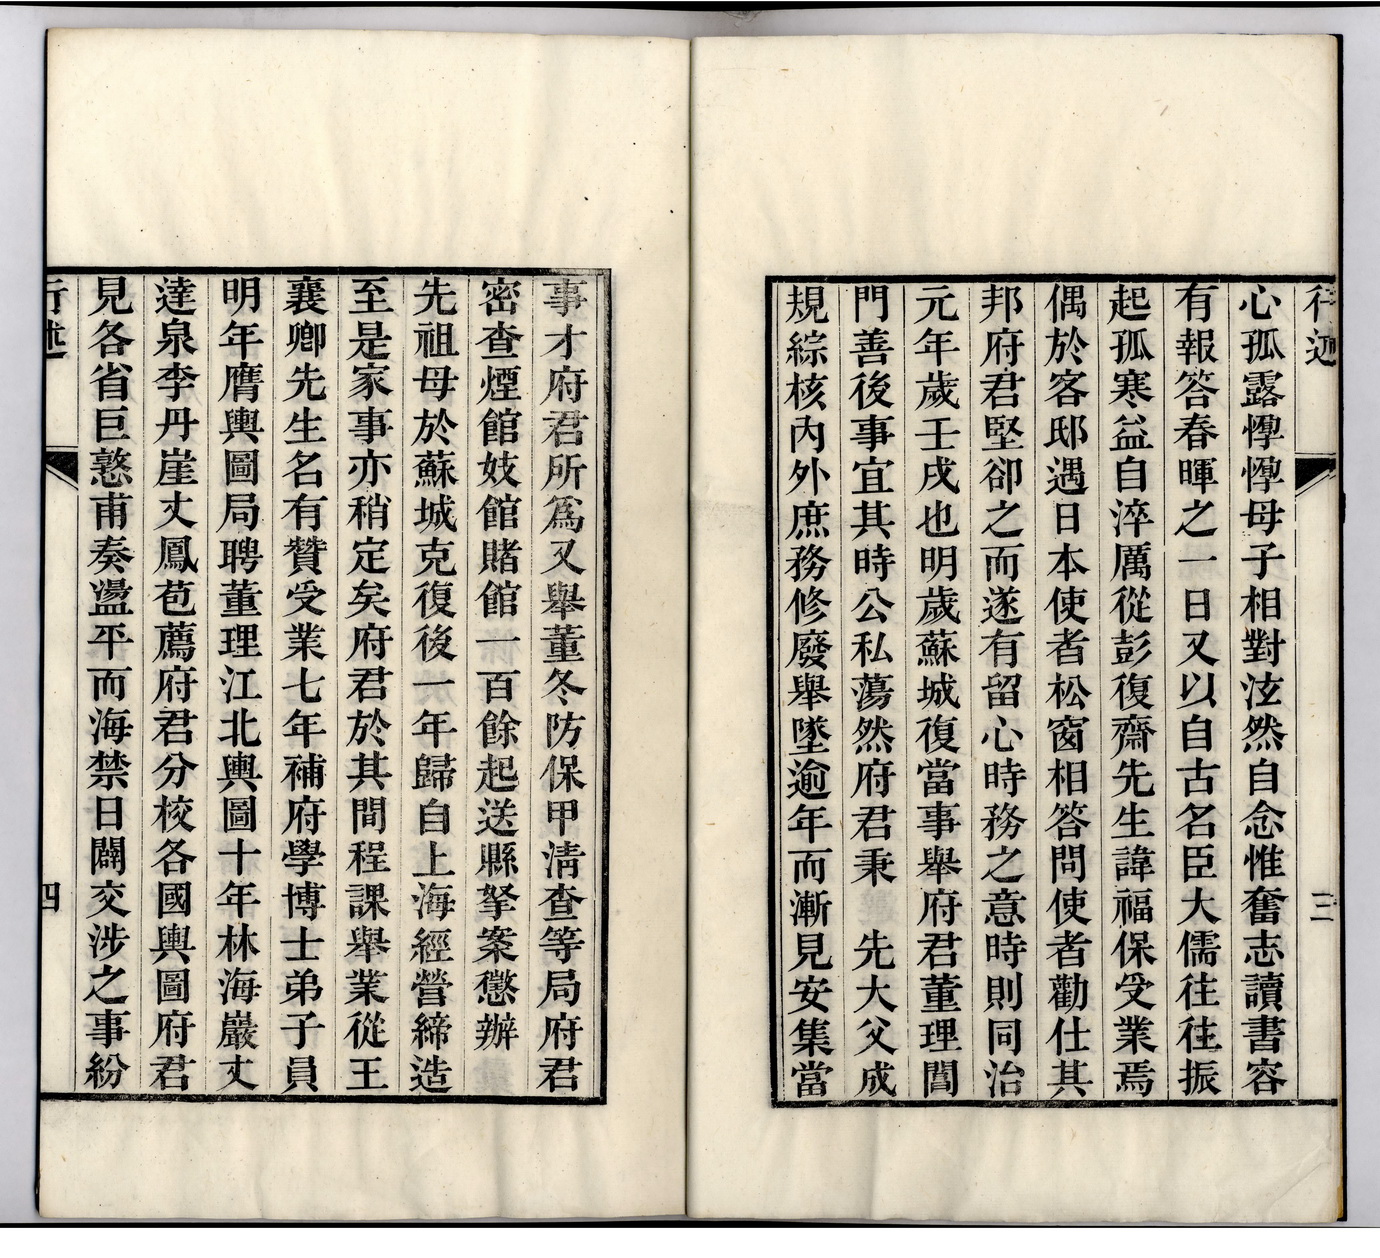 行述
三
心孤露惸惸母子相對泫然自念惟奮志讀書容
有報答春暉之一日又以自古名臣大儒往往振
起孤寒益自淬厲從彭復齋先生諱福保受業焉
偶於客邸遇日本使者松窗相答問使者勸仕其
邦府君堅卻之而遂有留心時務之意時則同治
元年歲壬戌也明歲蘇城復當事舉府君董理閶
門善後事宜其時公私蕩然府君秉　先大父成
規綜核內外庶務修廢舉墜逾年而漸見安集當
事才府君所爲又舉董冬防保甲淸查等局府君
密查煙館妓館賭館一百餘起送縣拏案懲辦
先祖母於蘇城克復後一年歸自上海經營締造
至是家事亦稍定矣府君於其間程課舉業從王
襄卿先生名有贊受業七年補府學博士弟子員
明年膺輿圖局聘董理江北輿圖十年林海巖丈
達泉李丹崖丈鳳苞薦府君分校各國輿圖府君
見各省巨憝甫奏盪平而海禁日闢交涉之事紛
行述
四